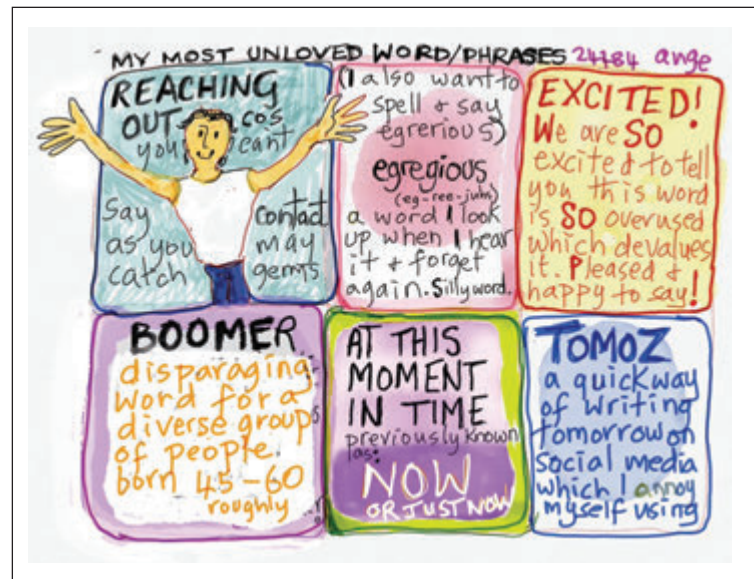 MY MOST UNLOVED WORD/PHRASES 24184 ange
REACHING
OUT cos
you can't
Say contact
as you may
catch germs
(I also want to
spell & say
egrerious)
egregious
(eg-ree-juhs)
a word I look
up when I hear
it & forget
again. Silly word.
EXCITED!
We are SO
excited to tell
you this word
is SO overused
which devalues
it. Pleased &
happy to say!
BOOMER
disparaging
word for a
diverse group
of people
born 45-60
roughly
AT THIS
MOMENT
IN TIME
previously known
as:
NOW
OR JUST NOW
TOMOZ
a quick way
of writing
tomorrow on
social media
which I annoy
myself using